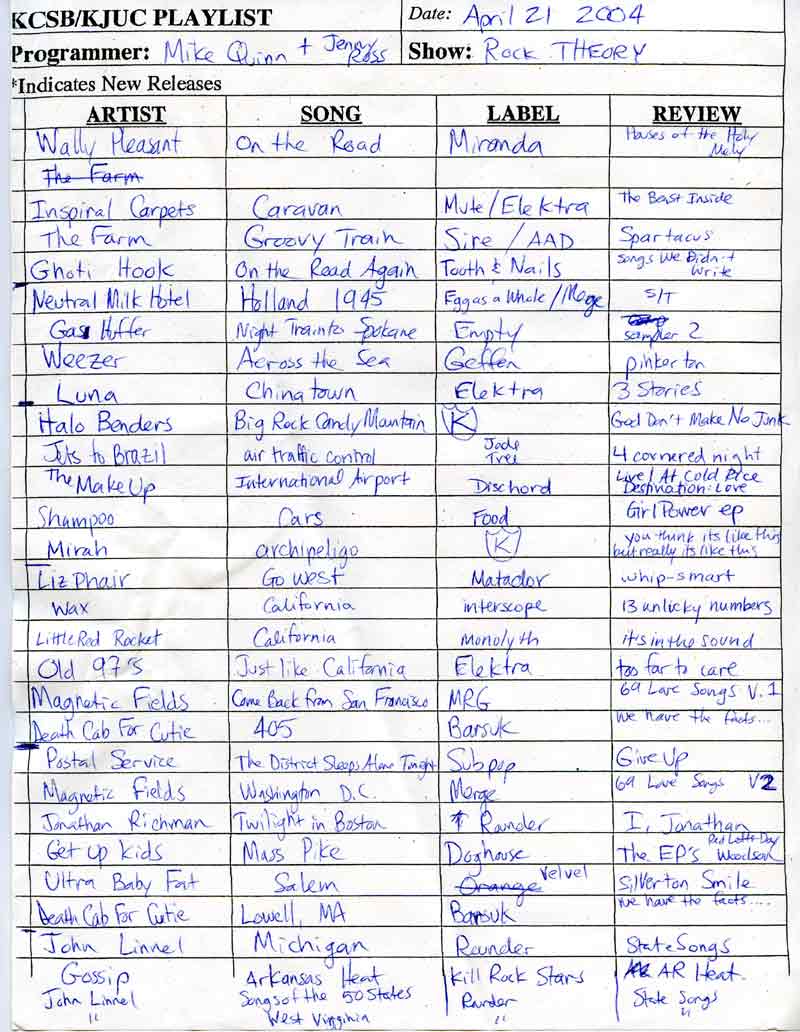 KCSB/KJUC PLAYLIST Date: April 21 2004
Programmer: Mike Quinn + Jenny Ross Show: Rock THEORY
*Indicates New Releases
ARTIST SONG LABEL REVIEW
Wally Pleasant On the Road Miranda Houses of the Holy Moly
The Farm
Inspiral Carpets Caravan Mute/Elektra The Beast Inside
The Farm Groovy Train Sire / AAD Spartacus
Ghoti Hook On the Road Again Tooth & Nails Songs We Didn't Write
Neutral Milk Hotel Holland 1945 Egg as a Whole/Merge S/T
Gas Huffer Night Train to Spokane Empty sampler 2
Weezer Across the Sea Geffen pinkerton
Luna Chinatown Elektra 3 Stories
Halo Benders Big Rock Candy Mountain K God Don't Make No Junk
Jets to Brazil air traffic control Jade Tree 4 cornered night
The Make Up International Airport Dischord Live! At Cold Rice Destination: Love
Shampoo Cars Food Girl Power ep
Mirah archipeligo K you think its like this but really its like this
Liz Phair Go West Matador whip-smart
Wax California interscope 13 unlucky numbers
Little Red Rocket California Monolyth it's in the sound
Old 97's Just like California Elektra too far to care
Magnetic Fields Come Back from San Francisco MRG 69 Love Songs V. 1
Death Cab For Cutie 405 Barsuk We have the facts...
Postal Service The District Sleeps Alone Tonight Subpop Give Up
Magnetic Fields Washington D.C. Merge 69 Love Songs V2
Jonathan Richman Twilight in Boston Rounder I, Jonathan
Get up kids Mass Pike Doghouse The EP's Red Letter Day Woodson
Ultra Baby Fat Salem Orange Velvel Silverton Smile
Death Cab For Cutie Lowell, MA Barsuk we have the facts....
John Linnel Michigan Rounder State Songs
Gossip Arkansas Heat Kill Rock Stars AR Heat
John Linnel Songs of the 50 States Rounder State Songs
" West Virginia " "